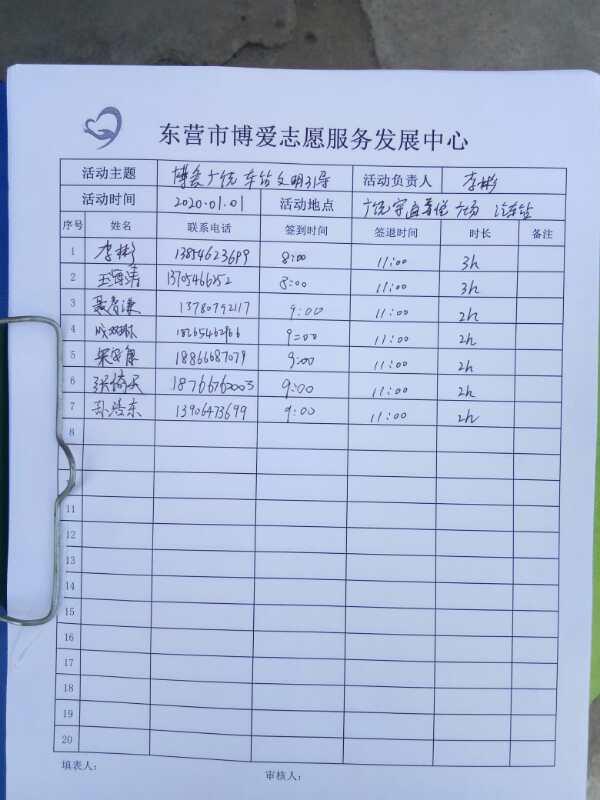 东营市博爱志愿服务发展中心
活动主题 博爱广饶 车站文明引导 活动负责人 李彬
活动时间 2020.01.01 活动地点 广饶 汽车站
序号 姓名 联系电话 签到时间 签退时间 时长 备注
1 李彬 13854623699 8:00 11:00 3h
2 13705466252 8:00 11:00 3h
3 13780792117 9:00 11:00 2h
4 9:00 11:00 2h
5 18866687079 9:00 11:00 2h
6 张倚天 18766762003 9:00 11:00 2h
7 孙浩东 13906473699 9:00 11:00 2h
8
11
12
13
14
15
16
17
18
19
20
填表人：
审核人：